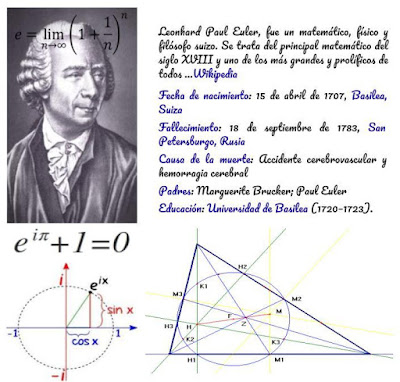 e = lim n→∞ (1 + 1/n)^n
Leonhard Paul Euler, fue un matemático, físico y
filósofo suizo. Se trata del principal matemático del
siglo XVIII y uno de los más grandes y prolíficos de
todos ...Wikipedia
Fecha de nacimiento: 15 de abril de 1707, Basilea,
Suiza
Fallecimiento: 18 de septiembre de 1783, San
Petersburgo, Rusia
Causa de la muerte: Accidente cerebrovascular y
hemorragia cerebral
Padres: Marguerite Brucker; Paul Euler
Educación: Universidad de Basilea (1720-1723).
e^{iπ}+1=0
i
e^{ix}
sin x
-1
cos x
1
-i
H2
K1
M3
M2
F
M
H
Z
K2
K3
H1
M1